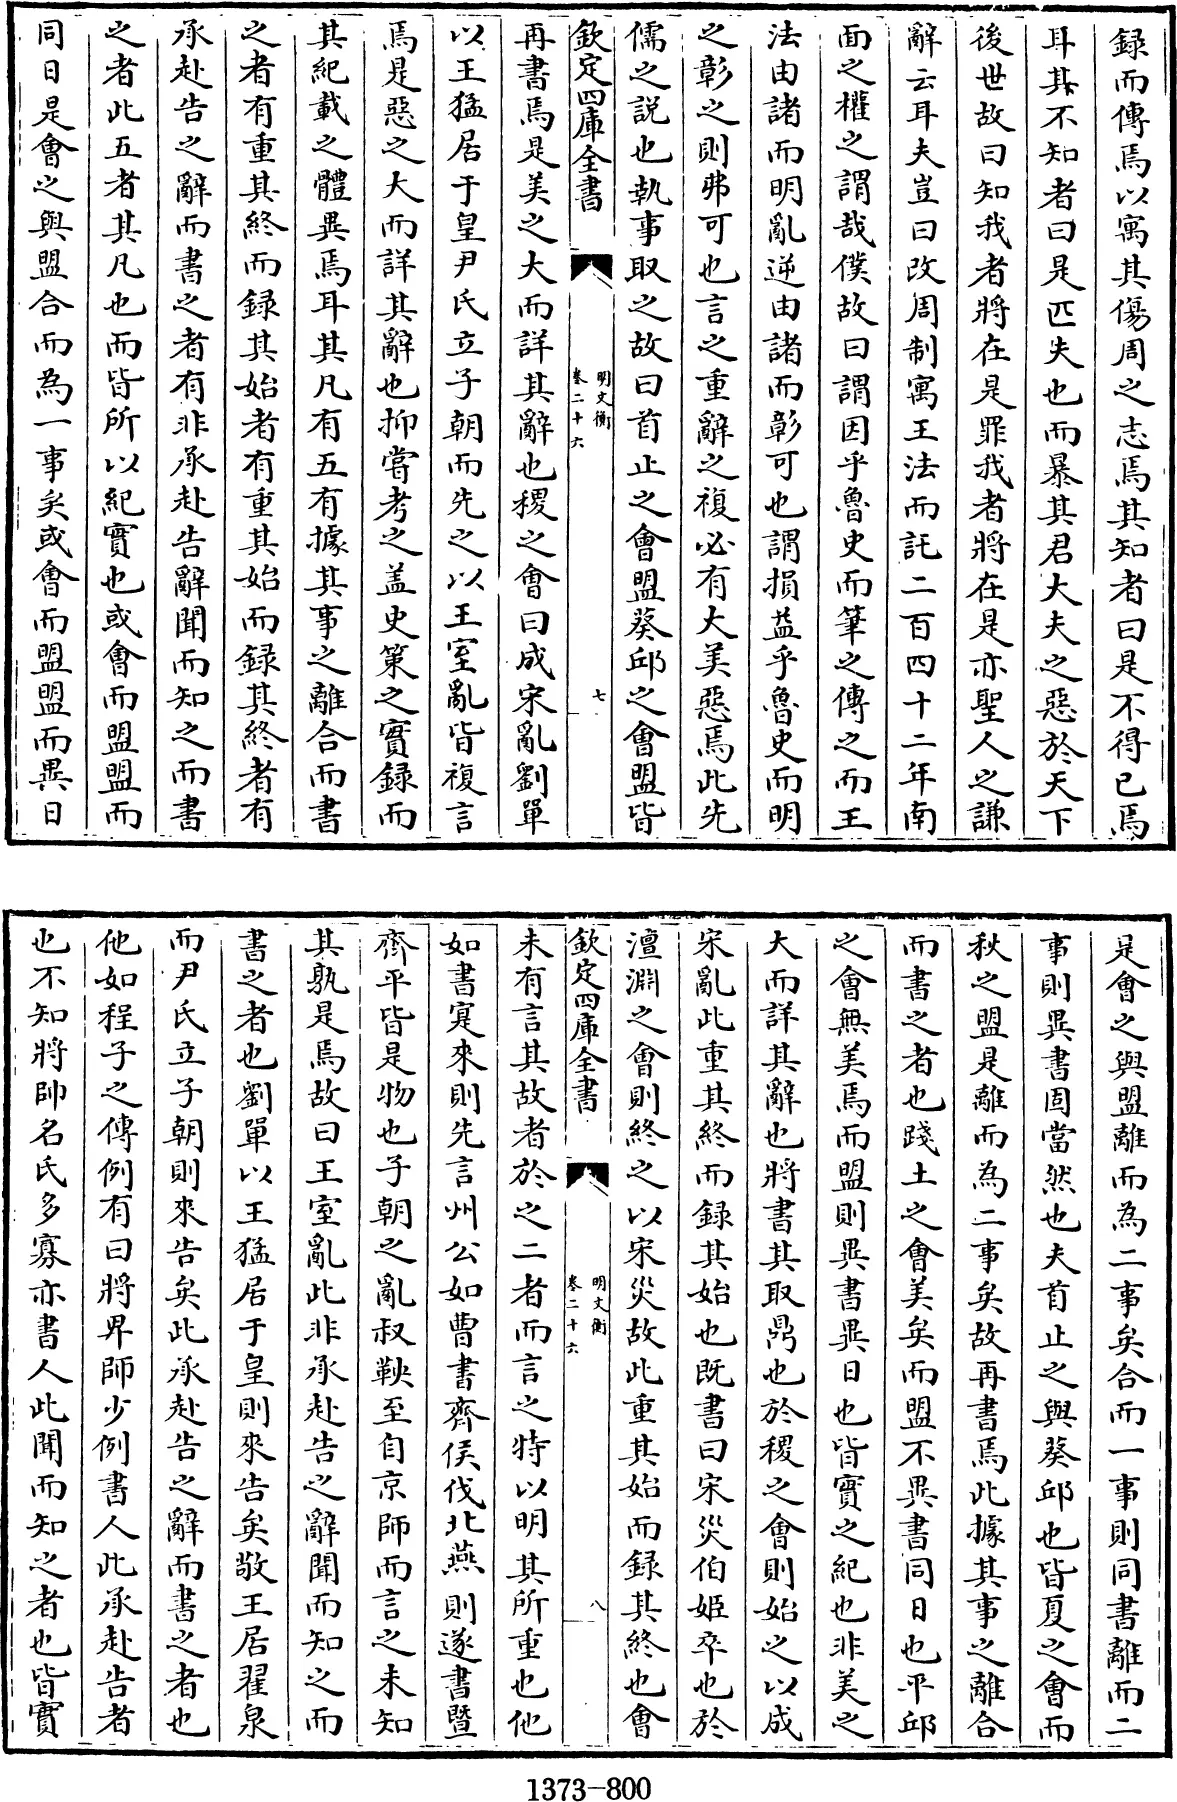 録而傳焉以寓其傷周之志焉其知者曰是不得已焉
耳其不知者曰是匹夫也而暴其君大夫之惡於天下
後世故曰知我者將在是罪我者將在是亦聖人之謙
辭云耳夫豈曰改周制寓王法而託二百四十二年南
面之權之謂哉僕故曰謂因乎魯史而筆之傳之而王
法由諸而明亂逆由諸而彰可也謂損益乎魯史而明
之彰之則弗可也言之重辭之複必有大美惡焉此先
儒之説也執事取之故曰首止之會盟葵邱之會盟皆
欽定四庫全書
明文衡
卷二十六
七
再書焉是美之大而詳其辭也稷之會曰成宋亂劉單
以王猛居于皇尹氏立子朝而先之以王室亂皆複言
焉是惡之大而詳其辭也抑嘗考之盖史策之實録而
其紀載之體異焉耳其凡有五有據其事之離合而書
之者有重其終而録其始者有重其始而録其終者有
承赴告之辭而書之者有非承赴告辭聞而知之而書
之者此五者其凡也而皆所以紀實也或會而盟盟而
同日是會之與盟合而為一事矣或會而盟盟而異日
是會之與盟離而為二事矣合而一事則同書離而二
事則異書固當然也夫首止之與葵邱也皆夏之會而
秋之盟是離而為二事矣故再書焉此據其事之離合
而書之者也踐土之會美矣而盟不異書同日也平邱
之會無美焉而盟則異書異日也皆實之紀也非美之
大而詳其辭也將書其取鼎也於稷之會則始之以成
宋亂此重其終而録其始也既書曰宋災伯姬卒也於
澶淵之會則終之以宋災故此重其始而録其終也會
欽定四庫全書
明文衡
卷二十六
八
未有言其故者於之二者而言之特以明其所重也他
如書寔來則先言州公如曹書齊侯伐北燕則遂書暨
齊平皆是物也子朝之亂叔鞅至自京師而言之未知
其孰是焉故曰王室亂此非承赴告之辭聞而知之而
書之者也劉單以王猛居于皇則來告矣敬王居翟泉
而尹氏立子朝則來告矣此承赴告之辭而書之者也
他如程子之傳例有曰將卑師少例書人此承赴告者
也不知將帥名氏多寡亦書人此聞而知之者也皆實
1373-800